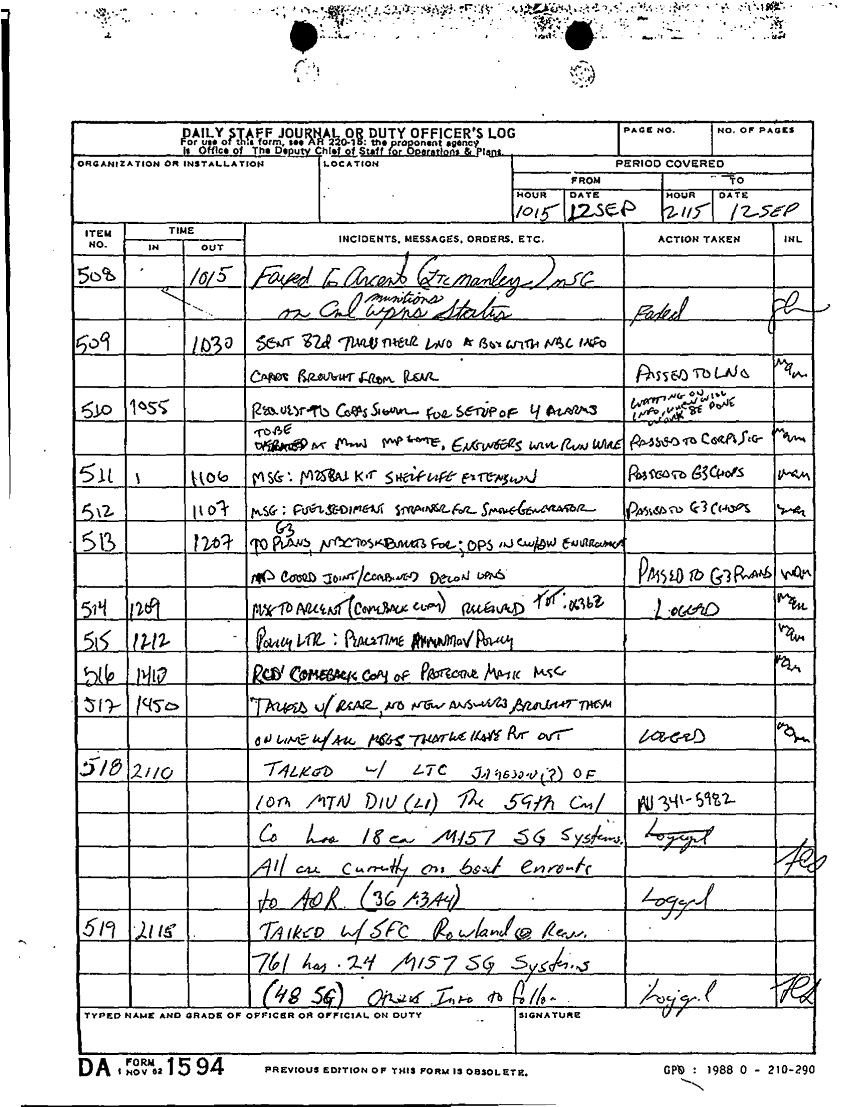 DAILY STAFF JOURNAL OR DUTY OFFICER'S LOG
For use of this form, see AR 220-15: the proponent agency
is Office of The Deputy Chief of Staff for Operations & Plans.
PAGE NO.
NO. OF PAGES
ORGANIZATION OR INSTALLATION
LOCATION
PERIOD COVERED
FROM
TO
HOUR DATE HOUR DATE
1015 12SEP 2115 12SEP
ITEM NO.
TIME
IN OUT
INCIDENTS, MESSAGES, ORDERS, ETC.
ACTION TAKEN
INL
508 1015 Faxed to Arcent (LTC Manley) MSG
munitions
on Cml wpns Status Faxed
509 1030 SENT 82d THRU THEIR LNO A BOX WITH NBC INFO
CARDS BROUGHT FROM REAR PASSED TO LNO
510 1055 REQUEST TO CORPS SIGNAL FOR SETUP OF 4 ALARMS WAITING ON INFO, WHEN WILL WORK BE DONE
TO BE
OPERATED AT MAIN MP GATE, ENGINEERS WILL RUN WIRE PASSED TO CORPS SIG
511 1106 MSG: M258A1 KIT SHELF LIFE EXTENSION PASSED TO G3 CHOPS
512 1107 MSG: FUEL SEDIMENT STRAINER FOR SMOKE GENERATOR PASSED TO G3 CHOPS
G3
513 1207 TO PLANS, NBC FOR; OPS IN CW/BW ENVIRONMENT
AND COORD JOINT/COMBINED DECON OPNS PASSED TO G3 PLANS
514 1209 MSG TO ARCENT (COMEBACK COPY) RECEIVED TOT: 0636Z LOGGED
515 1212 POLICY LTR: PEACETIME POLICY
516 1410 RCD COMEBACK COPY OF PROTECTIVE MASK MSG
517 1450 TALKED W/ REAR, NO NEW ANSWERS BROUGHT THEM
ON LINE W/ ALL MSGS THAT WE HAVE PUT OUT LOGGED
518 2110 TALKED W/ LTC (?) OF
10th MTN DIV (LI) The 59th Cml AV 341-5982
Co has 18 ea M157 SG Systems. Logged
All are currently on boat enroute
to AOR (36 M3A4) Logged
519 2115 TALKED W/ SFC Rowland @ Rear.
761 has 24 M157 SG Systems
(48 SG) Info to follow Logged
TYPED NAME AND GRADE OF OFFICER OR OFFICIAL ON DUTY
SIGNATURE
DA FORM 1 NOV 62 1594
PREVIOUS EDITION OF THIS FORM IS OBSOLETE.
GPO : 1988 O - 210-290